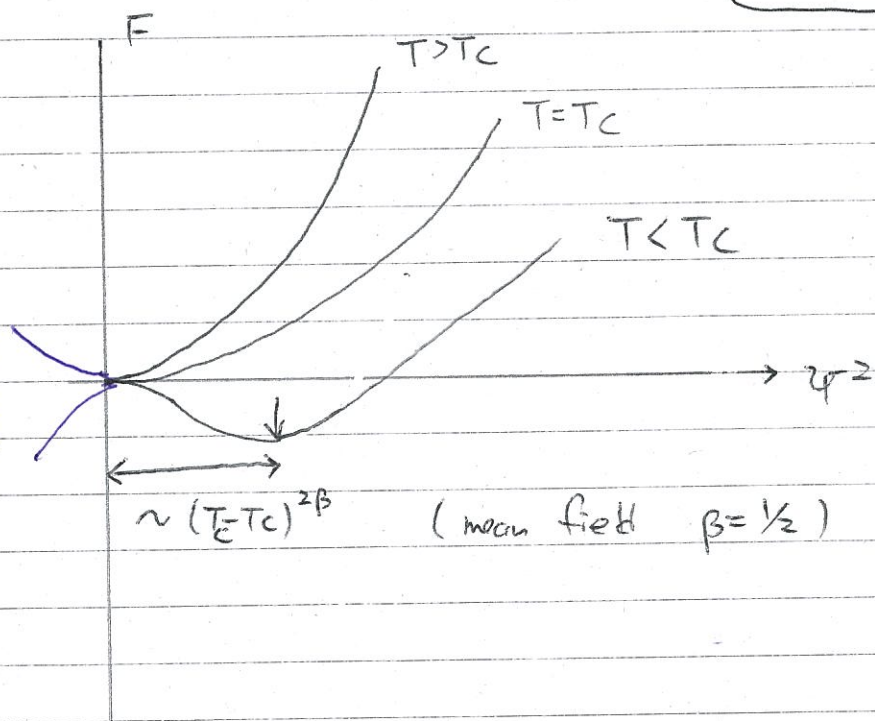 F
T>Tc
T=Tc
T<Tc
ψ²
~ (Tc-Tc)^2β (mean field β=1/2)